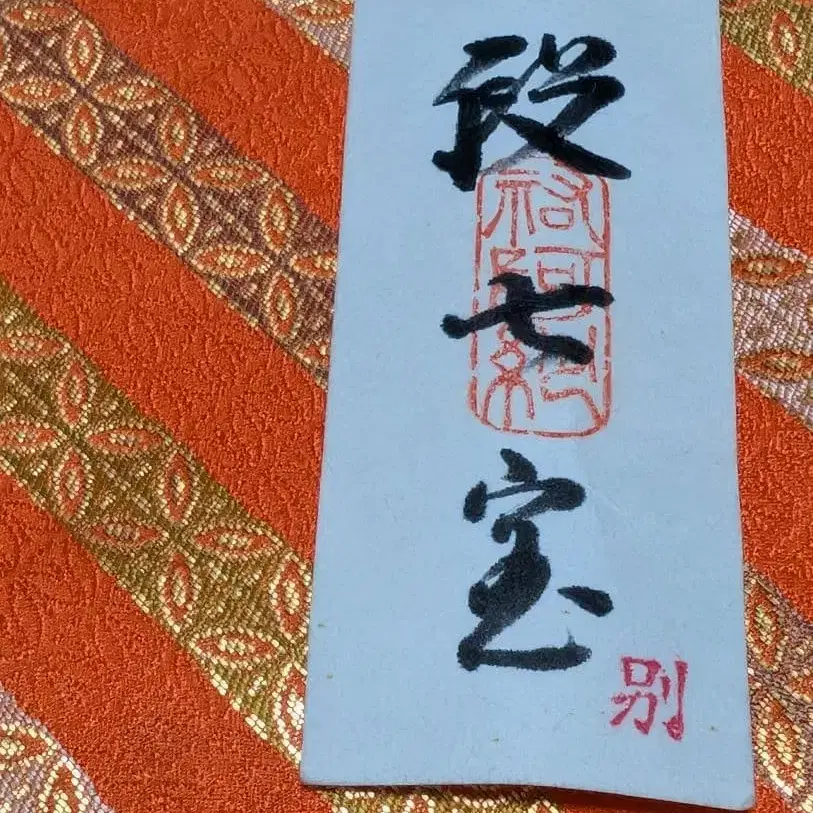 段七宝
別